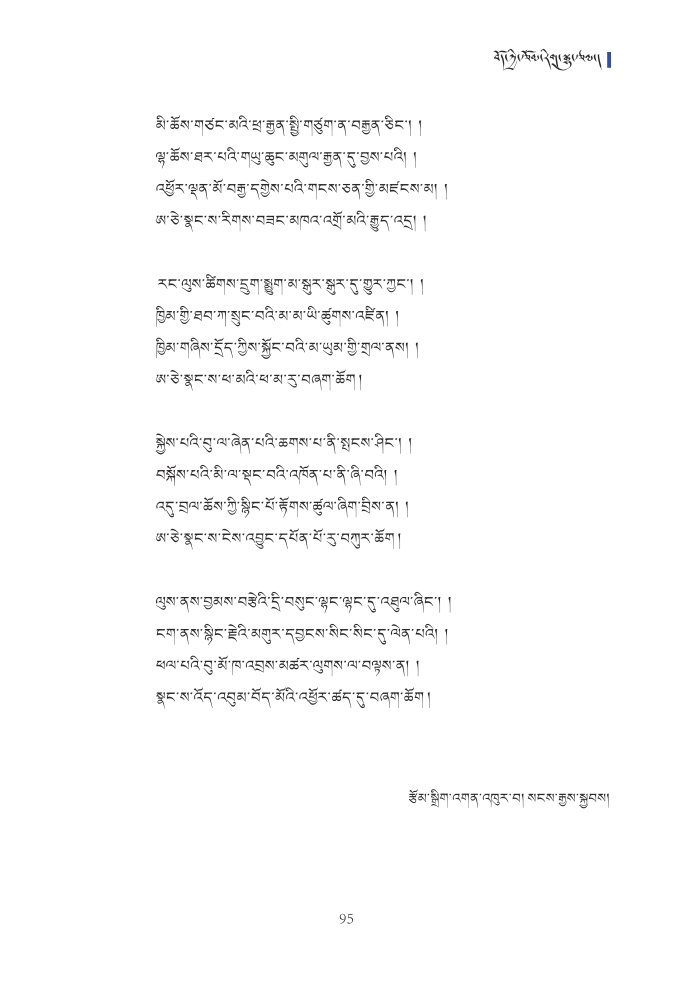 མི་ཆོས་གཙང་མའི་ཕྲ་རྒྱན་སྤྱི་གཙུག་ན་བརྒྱན་ཅིང་། །
ལྷ་ཆོས་ཐར་པའི་གཡུ་ཆུང་མགུལ་རྒྱན་དུ་བྱས་པའི། །
འཕྱོར་ལྡན་མོ་བརྒྱ་དགྱེས་པའི་གངས་ཅན་གྱི་མཛངས་མ། །
ཨ་ཅེ་སྣང་ས་རིགས་བཟང་མཁའ་འགྲོ་མའི་རྒྱུད་འདྲ། །
རང་ལུས་ཚིགས་དྲུག་སྨྱུག་མ་སྐུར་སྐུར་དུ་གྱུར་ཀྱང་། །
ཁྱིམ་གྱི་ཐབ་ཀ་སྲུང་བའི་མ་མ་ཡི་ཚུགས་འཛིན། །
ཁྱིམ་གཞིས་དྲོད་ཀྱིས་སྐྱོང་བའི་མ་ཡུམ་གྱི་གྲལ་ནས། །
ཨ་ཅེ་སྣང་ས་ཕ་མའི་ཕ་མ་རུ་བཞག་ཆོག །
སྐྱེས་པའི་བུ་ལ་ཞེན་པའི་ཆགས་པ་ནི་སྤངས་ཤིང་། །
བསྐོས་པའི་མི་ལ་སྡང་བའི་འཁོན་པ་ནི་ཞི་བའི། །
འདུ་བྲལ་ཆོས་ཀྱི་སྙིང་པོ་རྟོགས་ཚུལ་ཞིག་བྲིས་ན། །
ཨ་ཅེ་སྣང་ས་ངེས་འབྱུང་དཔོན་པོ་རུ་བཀུར་ཆོག །
ལུས་ནས་བྱམས་བརྩེའི་དྲི་བསུང་ལྷང་ལྷང་དུ་འཐུལ་ཞིང་། །
ངག་ནས་སྙིང་རྗེའི་མགུར་དབྱངས་སིང་སིང་དུ་ལེན་པའི། །
ཕལ་པའི་བུ་མོ་ཁ་འབྲས་མཚར་ལུགས་ལ་བལྟས་ན། །
སྣང་ས་འོད་འབུམ་བོད་མོའི་འཕྱོར་ཚད་དུ་བཞག་ཆོག །
རྩོམ་སྒྲིག་འགན་འཁུར་བ། སངས་རྒྱས་སྐྱབས།
95